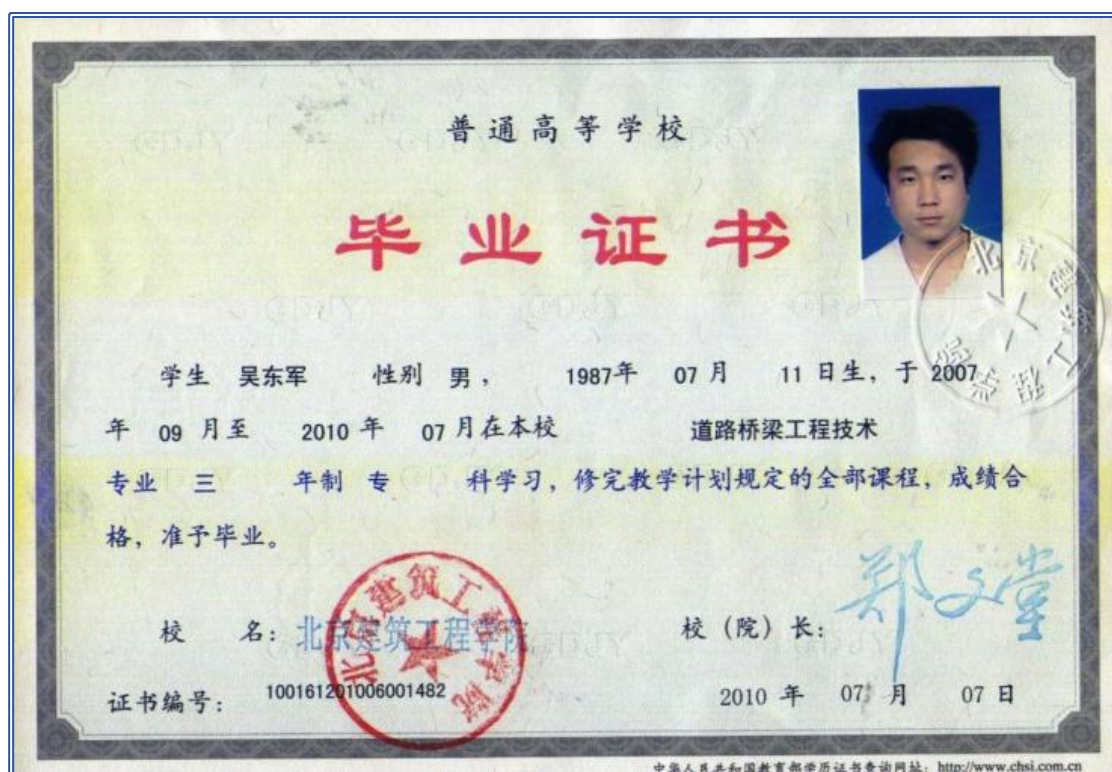 普通高等学校
毕业证书
学生 吴东军 性别 男， 1987年 07 月 11 日生，于 2007
年 09 月至 2010 年 07 月在本校 道路桥梁工程技术
专业 三 年制 专 科学习，修完教学计划规定的全部课程，成绩合
格，准予毕业。
校 名：北京建筑工程学院
校（院）长：郑文堂
北京建筑工程学院
证书编号：100161201006001482
2010 年 07 月 07 日
中华人民共和国教育部学历证书查询网址：http://www.chsi.com.cn
北京建筑工程学院